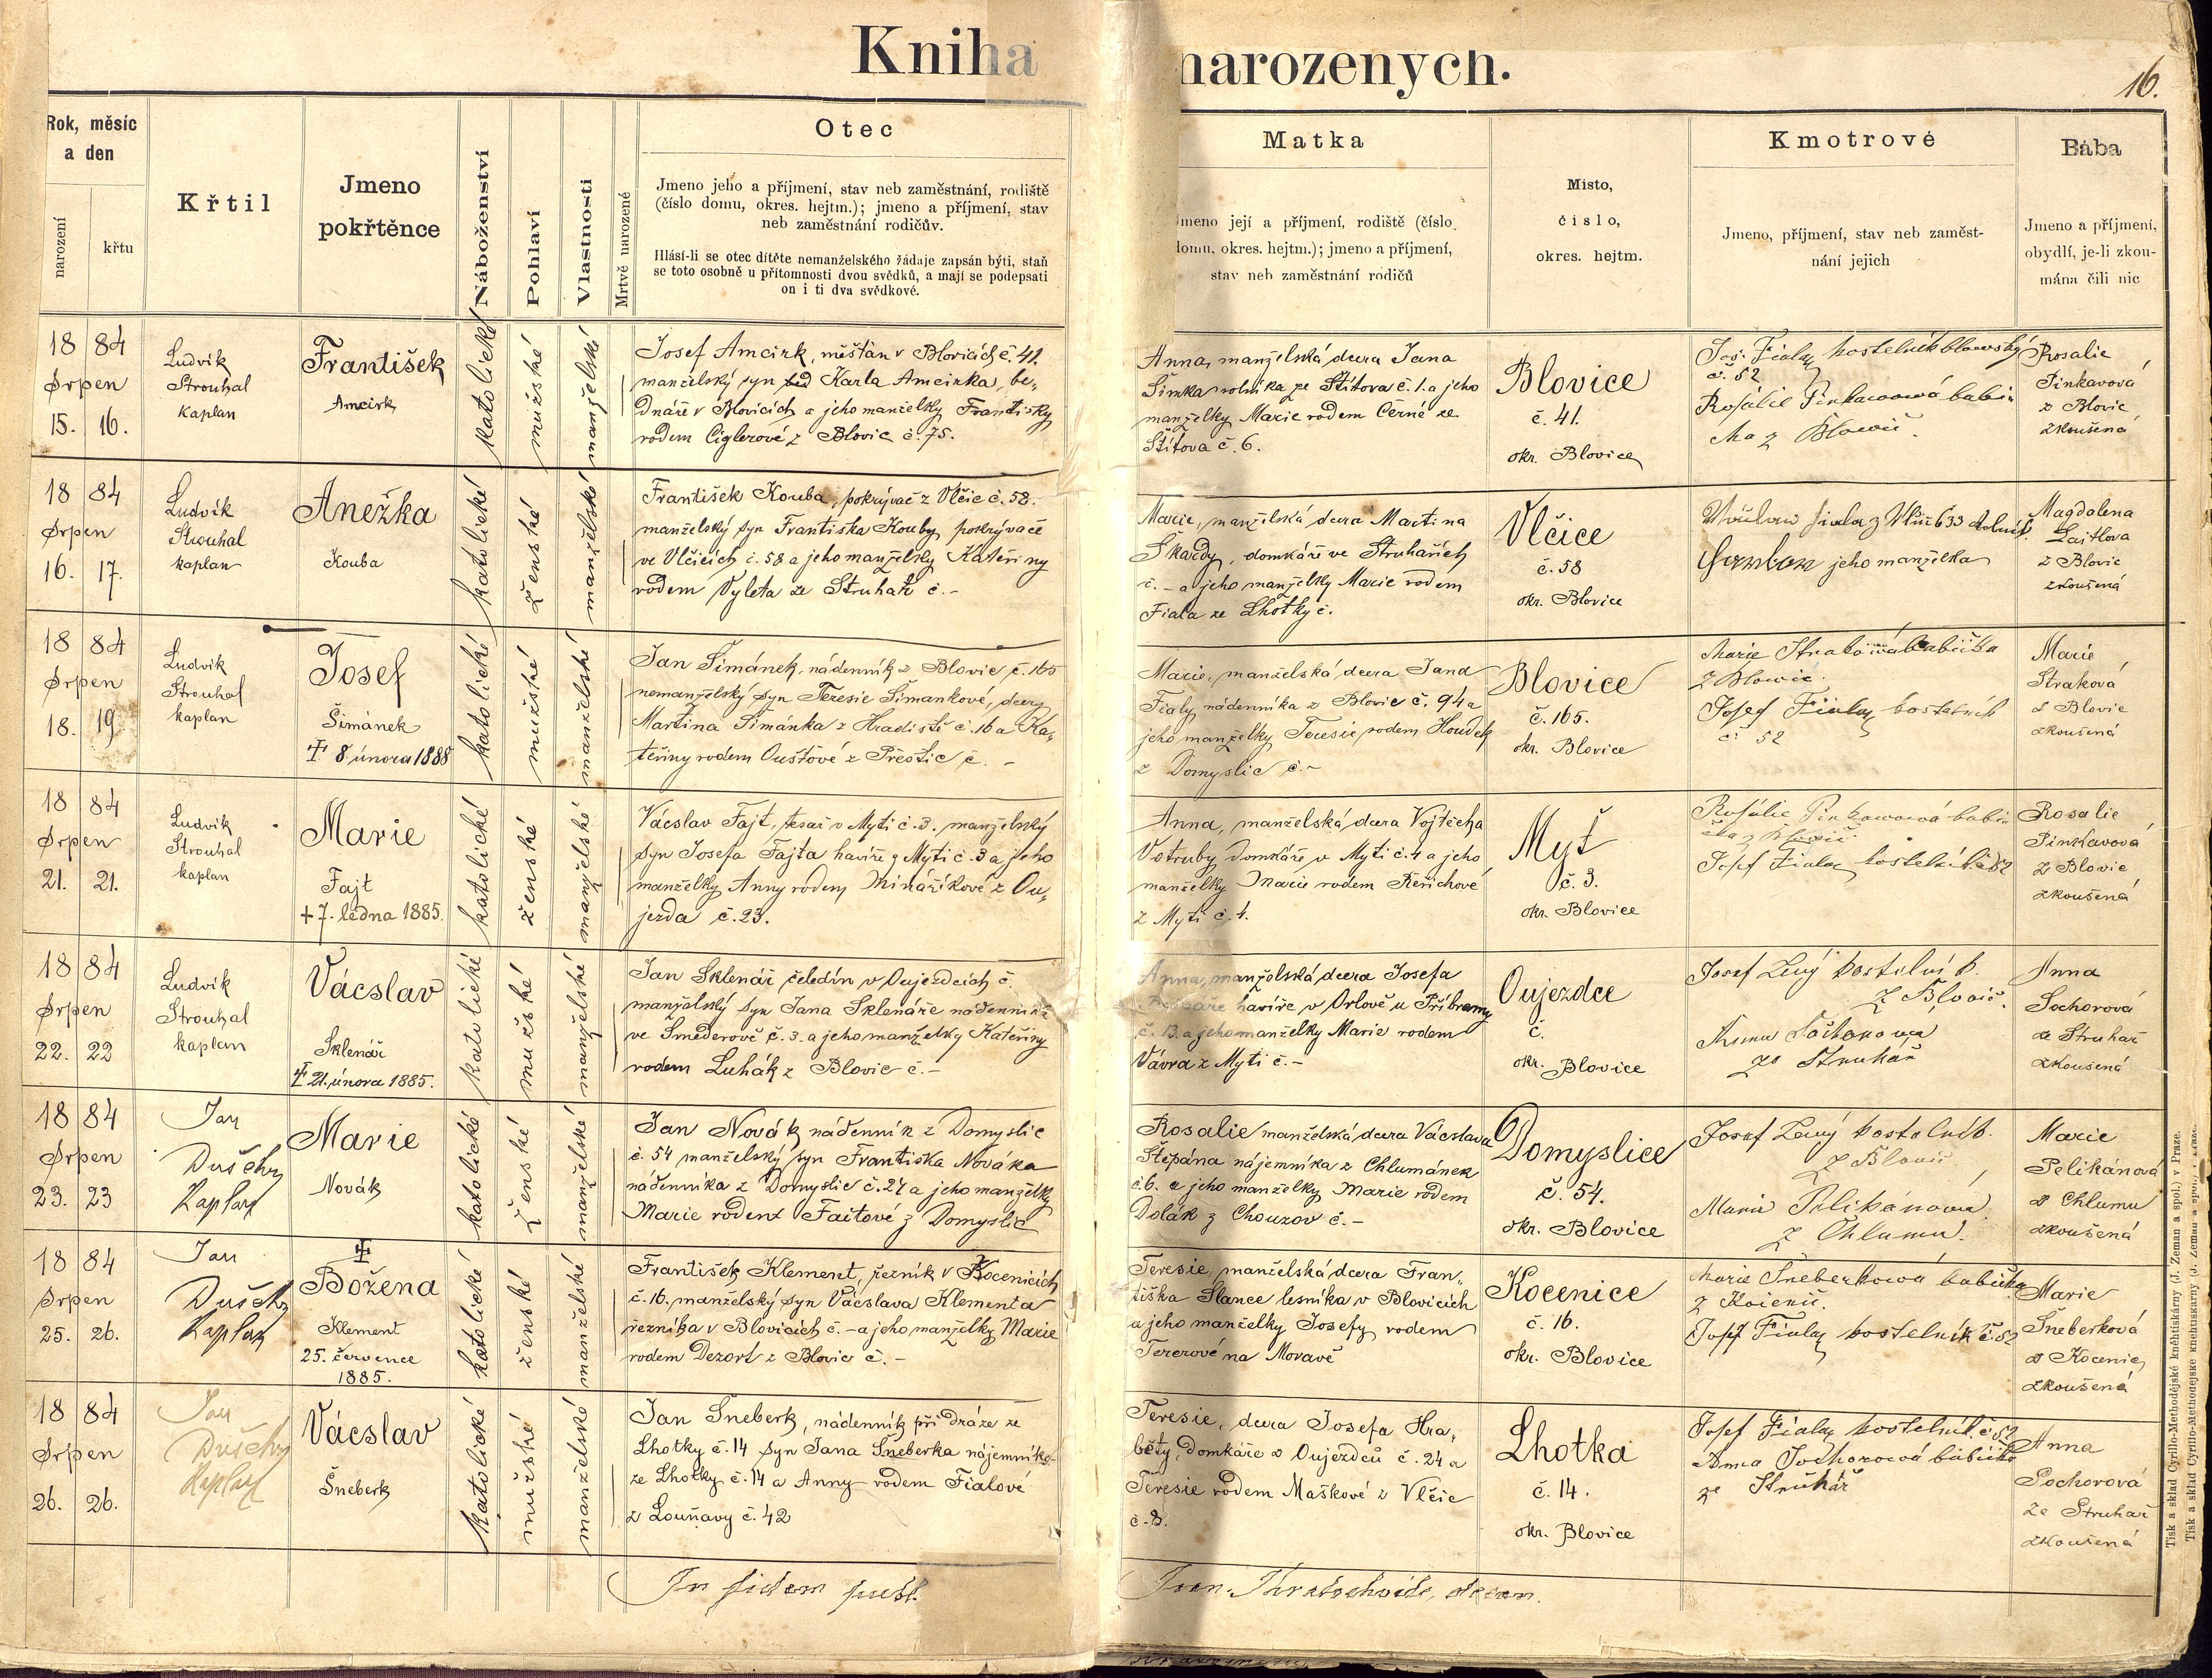 Kniha narozených.
16.
Rok, měsíc
a den
narození
křtu
Křtil
Jmeno
pokřtěnce
Náboženství
Pohlaví
Vlastnosti
Mrtvě narozené
Otec
Jmeno jeho a příjmení, stav neb zaměstnání, rodiště
(číslo domu, okres. hejtm.); jmeno a příjmení, stav
neb zaměstnání rodičův.
Hlásí-li se otec dítěte nemanželského žádaje zapsán býti, staň
se toto osobně u přítomnosti dvou svědků, a mají se podepsati
on i ti dva svědkové.
Matka
Jmeno její a příjmení, rodiště (číslo
domu, okres. hejtm.); jmeno a příjmení,
stav neb zaměstnání rodičů
Místo,
číslo,
okres. hejtm.
Kmotrové
Jmeno, příjmení, stav neb zaměst-
nání jejich
Bába
Jmeno a příjmení,
obydlí, je-li zkou-
mána čili nic
18 84
Srpen
15. 16.
Ludvík
Strouhal
kaplan
František
Amcirk
katolické
mužské
manželské
Josef Amcirk, měšťan v Blovicích č. 41.
manželský syn Karla Amcirka, be-
dnáře v Blovicích a jeho manželky Františky
rodem Ciglerové z Blovic č. 75.
Anna, manželská dcera Jana
Šimka rolníka ze Štítova č. 1. a jeho
manželky Marie rodem Černé ze
Štítova č. 6.
Blovice
č. 41.
okr. Blovice
Jos. Fiala kostelník blovský
č. 52
Rosálie Pinkavová babi-
čka z Blovic.
Rosalie
Pinkavová
z Blovic
zkoušená
18 84
Srpen
16. 17.
Ludvík
Strouhal
kaplan
Anežka
Kouba
katolické
ženské
manželské
František Kouba, pokrývač z Vlčic č. 58.
manželský syn Františka Kouby pokrývače
ve Vlčicích č. 58 a jeho manželky Kateřiny
rodem Vyleta ze Struhař č. -
Marie, manželská dcera Martina
Škardy, domkáře ve Struhařích
č. - a jeho manželky Marie rodem
Fiala ze Lhotky č.
Vlčice
č. 58
okr. Blovice
jeho manželka
Magdalena
z Blovic
zkoušená
18 84
Srpen
18. 19.
Ludvík
Strouhal
kaplan
Josef
Šimánek
‡ 8. února 1888
katolické
mužské
manželské
Jan Šimánek, nádenník z Blovic č. 165
nemanželský syn Teresie Šimankové, dcery
Martina Šimánka z Hradiště č. 16 a Ka-
teřiny rodem Ouštové z Přeštic č. -
Marie, manželská dcera Jana
Fialy, nádenníka z Blovic č. 94 a
jeho manželky Teresie, rodem Houdek
z Domyslic č. -
Blovice
č. 165.
okr. Blovice
Marie Straková babička
z Blovic.
Josef Fiala kostelník
č. 52
Marie
Straková
z Blovic
zkoušená
18 84
Srpen
21. 21.
Ludvík
Strouhal
kaplan
Marie
Fajt
+ 7. ledna 1885.
katolické
ženské
manželské
Vácslav Fajt, tesař v Mýti č. 3. manželský
syn Josefa Fajta havíře z Mýti č. 3 a jeho
manželky Anny rodem Minaříkové z Ou-
jezda č. 23.
Anna, manželská dcera Vojtěcha
Votruby domkáře v Mýti č. 4 a jeho
manželky Marie rodem Řeřichové
z Mýti č. 4.
Mýť
č. 3.
okr. Blovice
Rosálie Pinkavová babi-
čka z Blovic
Josef Fiala kostelník č. 52
Rosalie
Pinkavová
z Blovic
zkoušená
18 84
Srpen
22. 22
Ludvík
Strouhal
kaplan
Vácslav
Sklenář
‡ 21. února 1885.
katolické
mužské
manželské
Jan Sklenář čeledín v Oujezdcích č.
manželský syn Jana Sklenáře nádenníka
ve Smederově č. 3. a jeho manželky Kateřiny
rodem Luhák z Blovic č. -
Anna, manželská dcera Josefa
havíře v Orlově u Příbramy
č. 13. a jeho manželky Marie rodem
Vávra z Mýti č. -
Oujezdce
č.
okr. Blovice
Josef Levý kostelník.
z Blovic.
Anna Sochorová
ze Struhař
Anna
Sochorová
ze Struhař
zkoušená
18 84
Srpen
23. 23
Jan
Dušek
Kaplan
Marie
Novák
katolické
ženské
manželské
Jan Novák nádenník z Domyslic
č. 54 manželský syn Františka Nováka
nádenníka z Domyslic č. 24 a jeho manželky
Marie rodem Faitové z Domyslic
Rosalie manželská dcera Vácslava
Štěpána nájemníka z Chlumánek
č. 6. a jeho manželky Marie rodem
Dolák z Chouzov č. -
Domyslice
č. 54.
okr. Blovice
Josef Levý kostelník.
z Blovic
Marie Pelikánová
z Chlumu.
Marie
Pelikánová
z Chlumu
zkoušená
18 84
Srpen
25. 26.
Jan
Dušek
Kaplan
‡
Božena
Klement
25. července
1885.
katolické
ženské
manželské
František Klement, řezník v Kocenicích
č. 16. manželský syn Vácslava Klementa
řezníka v Blovicích č. - a jeho manželky Marie
rodem Dezort z Blovic č. -
Teresie, manželská dcera Fran-
tiška Slance lesníka v Blovicích
a jeho manželky Josefy rodem
Tererové na Moravě
Kocenice
č. 16.
okr. Blovice
Marie Šneberková babička
z Kocenic.
Josef Fiala kostelník č. 52
Marie
Šneberková
z Kocenic
zkoušená
18 84
Srpen
26. 26.
Jan
Dušek
Kaplan
Vácslav
Šneberk
katolické
mužské
manželské
Jan Šneberk, nádenník při dráze ze
Lhotky č. 14 syn Jana Šneberka nájemníka
ze Lhotky č. 14 a Anny rodem Fialové
z Louňavy č. 42
Teresie, dcera Josefa Hra-
běty, domkáře z Oujezdců č. 24 a
Teresie rodem Maškové z Vlčic
č. 8.
Lhotka
č. 14.
okr. Blovice
Josef Fiala kostelník č. 52
Anna Sochorová babička
ze Struhař
Anna
Sochorová
ze Struhař
zkoušená
In fidem publ.
děkan.
Tisk a sklad Cyrillo-Methodějské kněhtiskárny (J. Zeman a spol.) v Praze.